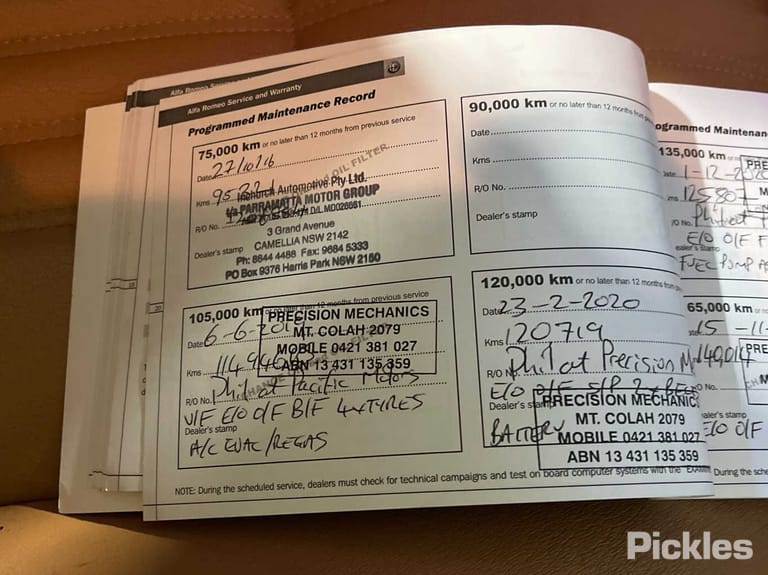 Alfa Romeo Service and
Alfa Romeo Service and Warranty
Programmed Maintenance Record
75,000 km or no later than 12 months from previous service
Date 27/10/16
Kms 95
R/O No.
Dealer's stamp
Automotive Pty Ltd.
t/a PARRAMATTA MOTOR GROUP
3 Grand Avenue
CAMELLIA NSW 2142
Ph: 8644 4488 Fax: 9684 5333
PO Box 9376 Harris Park NSW 2150
OIL FILTER
90,000 km or no later than 12 months
Date
Kms
R/O No.
Dealer's stamp
105,000 km or no later than 12 months from previous service
Date 6-6-2019
Kms 114940
R/O No. Phil at Pacific Motors
V/F E/O O/F B/F 4xTYRES
Dealer's stamp
A/C EVAC/REGAS
PRECISION MECHANICS
MT. COLAH 2079
MOBILE 0421 381 027
ABN 13 431 135 359
120,000 km or no later than 12 months from
Date 23-2-2020
Kms 120719
R/O No. Phil at Precision M
E/O O/F
Dealer's stamp
BATTERY
PRECISION MECHANIC
MT. COLAH 2079
MOBILE 0421 381 027
ABN 13 431 135 359
NOTE: During the scheduled service, dealers must check for technical campaigns and test on board computer systems with the
ogrammed Maintenan
135,000 km or no
ate 1-12-2020
ms 125807
/O No. Phil at P
E/O O/F F
ealer's stamp
FUEL PUMP
PRE
65,000 km or
ate 15-11-
149014
O No.
aler's stamp
E/O O/F
PRE
NOTE: During the sche
Pickles